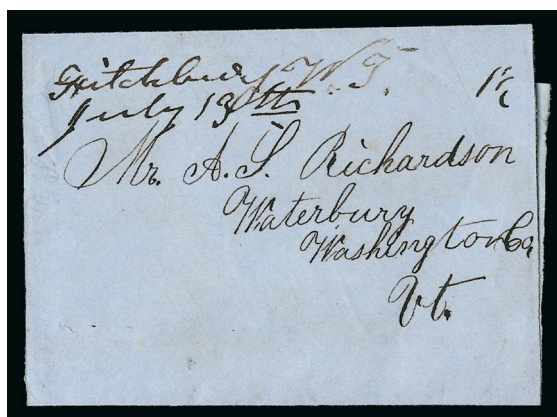 Fitchburg W.T.
July 13th
Mr. A. S. Richardson
Waterbury
Washington Co
Vt.